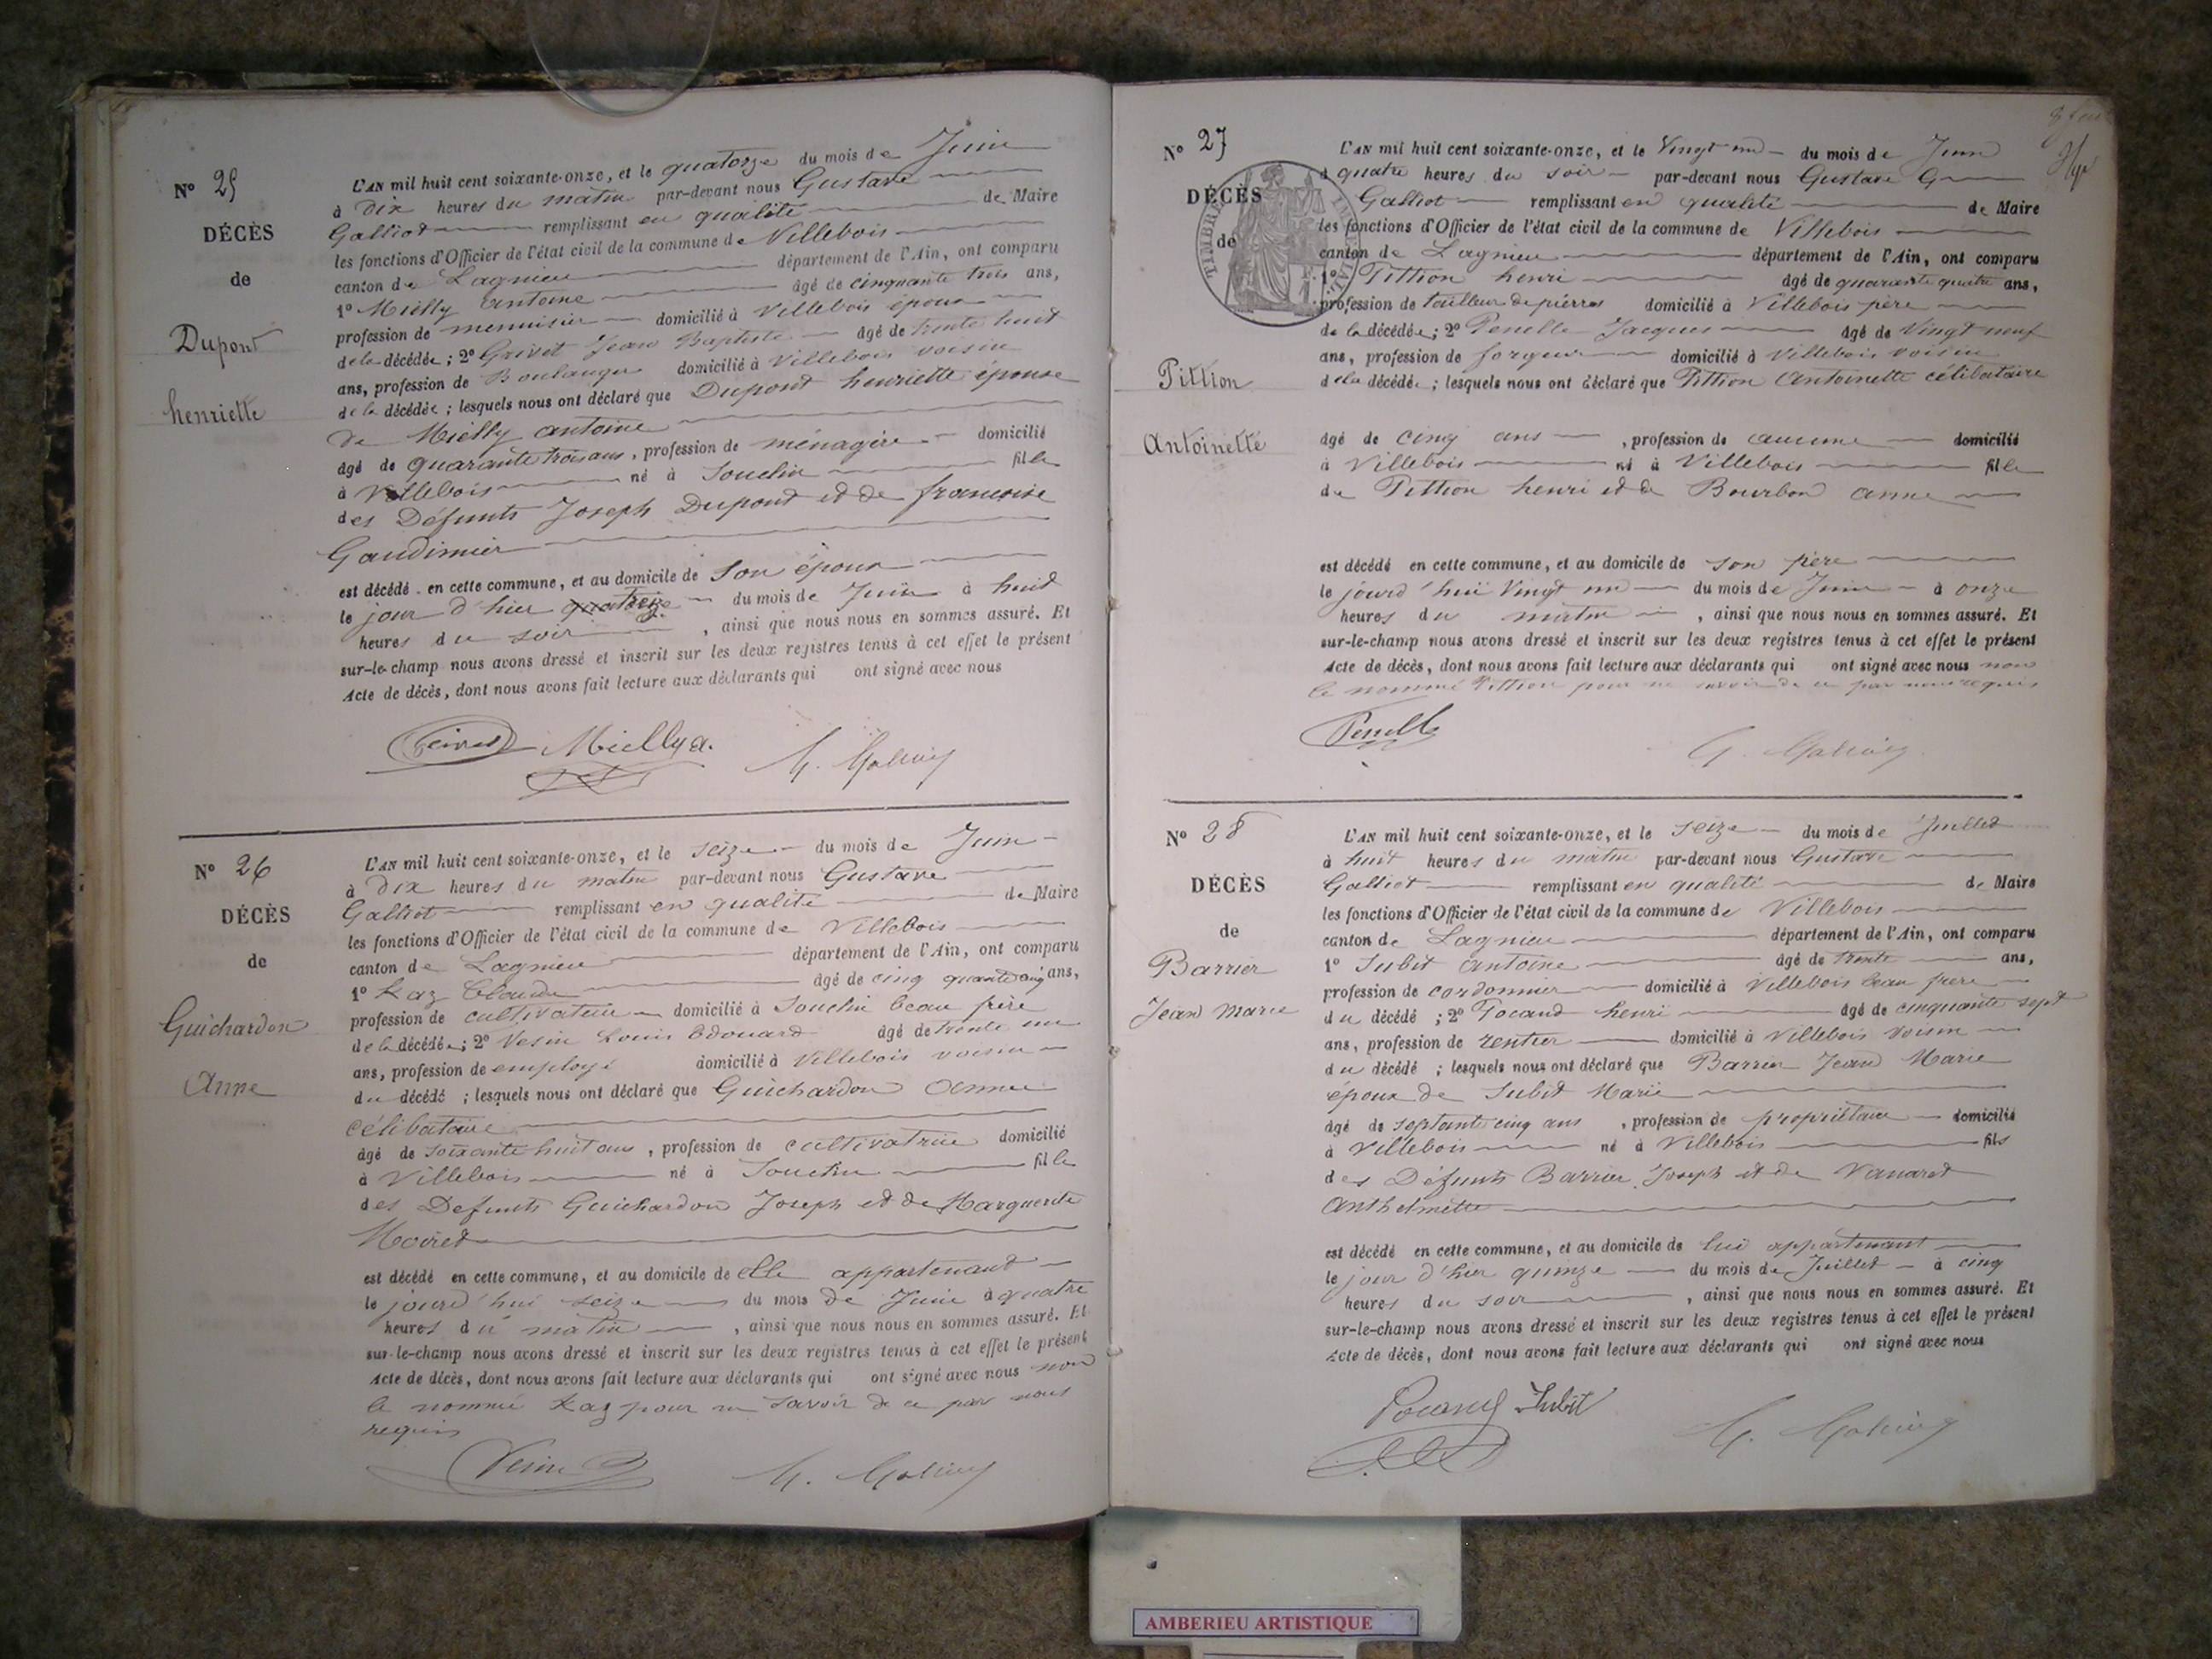 N° 25
DÉCÈS
de
Dupont
henriette
L'AN mil huit cent soixante-onze, et le quatorze du mois de Juin
à Dix heures du matin par-devant nous Gustave
Galliot remplissant en qualité de Maire
les fonctions d'Officier de l'état civil de la commune de Villebois
canton de Lagnieu département de l'Ain, ont comparu
1° Mielly Antoine âgé de cinquante trois ans,
profession de menuisier domicilié à Villebois époux
de la décédée ; 2° Grivet Jean Baptiste âgé de trente huit
ans, profession de Boulanger domicilié à Villebois voisin
de la décédée ; lesquels nous ont déclaré que Dupont henriette épouse
de Mielly antoine
âgé de quarante trois ans, profession de ménagère domicilié
à Villebois né à Souclin fille
des Défunts Joseph Dupont et de francoise
Gaudimier
est décédé en cette commune, et au domicile de Son époux
le jour d'hier du mois de Juin à huit
heures du soir , ainsi que nous nous en sommes assuré. Et
sur-le-champ nous avons dressé et inscrit sur les deux registres tenus à cet effet le présent
Acte de décès, dont nous avons fait lecture aux déclarants qui ont signé avec nous
Mielly a.
N° 26
DÉCÈS
de
Guichardon
Anne
L'AN mil huit cent soixante-onze, et le seize du mois de Juin
à Dix heures du matin par-devant nous Gustave
Galliot remplissant en qualité de Maire
les fonctions d'Officier de l'état civil de la commune de Villebois
canton de Lagnieu département de l'Ain, ont comparu
1° Kaz Claude âgé de cinq quante cinq ans,
profession de cultivateur domicilié à Souclin beau frère
de la décédée ; 2° Vesin Louis Edouard âgé de trente un
ans, profession de employé domicilié à Villebois voisin
du décédé ; lesquels nous ont déclaré que Guichardon Anne
célibataire
âgé de soixante huit ans, profession de cultivatrice domicilié
à Villebois né à Souclin fille
des Defunts Guichardon Joseph et de Marguerite
Moiret
est décédé en cette commune, et au domicile de elle appartenant
le jourd'hui seize du mois de Juin à quatre
heures du matin , ainsi que nous nous en sommes assuré. Et
sur-le-champ nous avons dressé et inscrit sur les deux registres tenus à cet effet le présent
Acte de décès, dont nous avons fait lecture aux déclarants qui ont signé avec nous non
le nommé Kaz pour ne savoir de ce par nous
requis
N° 27
DÉCÈS
de
Pittion
Antoinette
TIMBRE IMPERIAL
L'AN mil huit cent soixante-onze, et le Vingt un du mois de Juin
à quatre heures du soir par-devant nous Gustave G
Galliot remplissant en qualité de Maire
les fonctions d'Officier de l'état civil de la commune de Villebois
canton de Lagnieu département de l'Ain, ont comparu
1° Pittion henri âgé de quarante quatre ans,
profession de tailleur de pierres domicilié à Villebois père
de la décédée ; 2° Penelle Jacques âgé de Vingt neuf
ans, profession de forgeur domicilié à Villebois voisin
de la décédée ; lesquels nous ont déclaré que Pittion Antoinette célibataire
âgé de cinq ans , profession de aucune domicilié
à Villebois né à Villebois fille
de Pittion henri et de Bourbon anne
est décédé en cette commune, et au domicile de son père
le jourd'hui Vingt un du mois de Juin à onze
heures du matin , ainsi que nous nous en sommes assuré. Et
sur-le-champ nous avons dressé et inscrit sur les deux registres tenus à cet effet le présent
Acte de décès, dont nous avons fait lecture aux déclarants qui ont signé avec nous non
le nommé Pittion pour ne savoir de ce par nous requis
Penelle
N° 28
DÉCÈS
de
Barrier
Jean Marie
L'AN mil huit cent soixante-onze, et le seize du mois de Juillet
à huit heures du matin par-devant nous Gustave
Galliot remplissant en qualité de Maire
les fonctions d'Officier de l'état civil de la commune de Villebois
canton de Lagnieu département de l'Ain, ont comparu
1° Subit Antoine âgé de trente ans,
profession de cordonnier domicilié à Villebois beau frere
du décédé ; 2° Pocand henri âgé de cinquante sept
ans, profession de rentier domicilié à Villebois voisin
du décédé ; lesquels nous ont déclaré que Barrier Jean Marie
époux de Subit Marie
âgé de septante cinq ans , profession de propriétaire domicilié
à Villebois né à Villebois fils
des Défunts Barrier Joseph et de Vanaret
Anthelmette
est décédé en cette commune, et au domicile de lui appartenant
le jour d'hier quinze du mois de Juillet à cinq
heures du soir , ainsi que nous nous en sommes assuré. Et
sur-le-champ nous avons dressé et inscrit sur les deux registres tenus à cet effet le présent
Acte de décès, dont nous avons fait lecture aux déclarants qui ont signé avec nous
Pocand Subit
AMBERIEU ARTISTIQUE